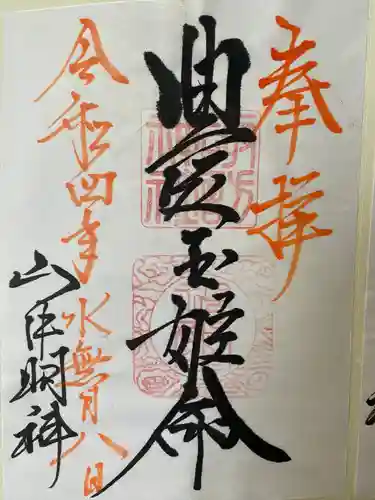 奉拝
豊玉姫命
令和四年水無月八日
山津明神